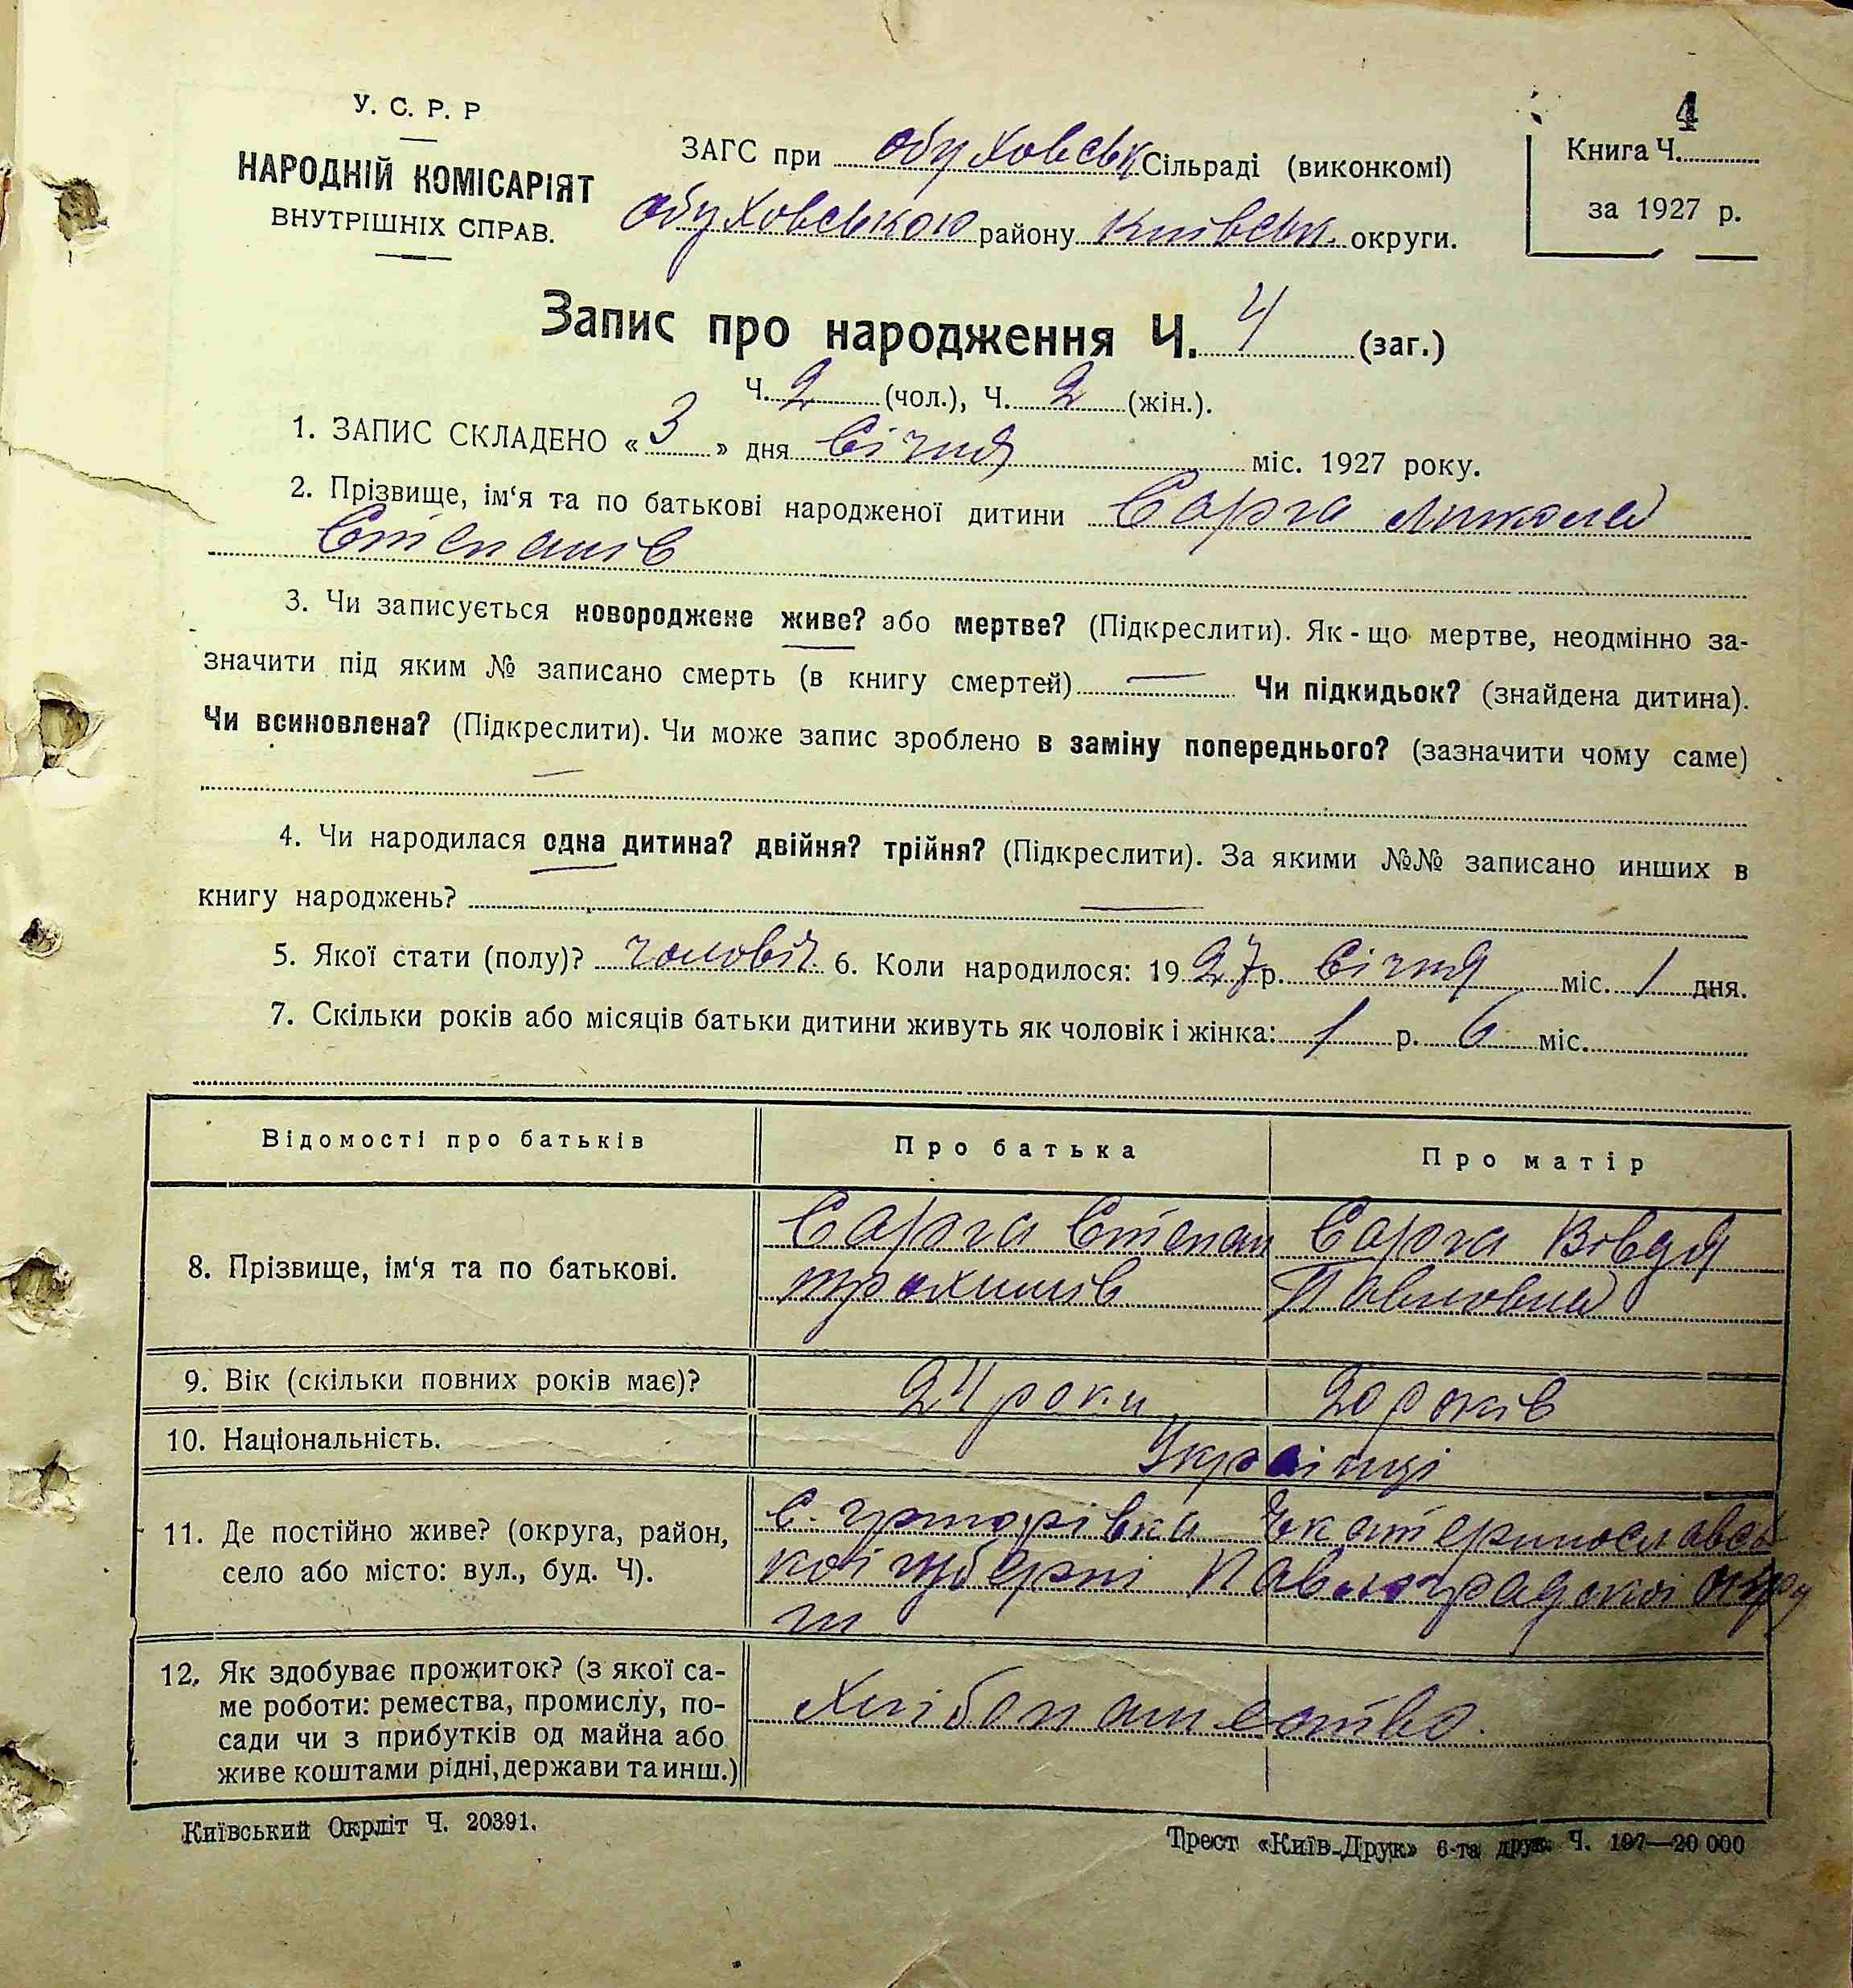 У. С. Р. Р
НАРОДНІЙ КОМІСАРІЯТ
ВНУТРІШНІХ СПРАВ.
ЗАГС при Обуховськ Сільраді (виконкомі)
Обуховського району Київськ. округи.
4
Книга Ч.
за 1927 р.
Запис про народження Ч. 4 (заг.)
Ч. 2 (чол.), Ч. 2 (жін.).
1. ЗАПИС СКЛАДЕНО « 3 » дня Січня міс. 1927 року.
2. Прізвище, ім‘я та по батькові народженої дитини Сарга Микола
Степанів
3. Чи записується новороджене живе? або мертве? (Підкреслити). Як-що мертве, неодмінно за-
значити під яким № записано смерть (в книгу смертей) — Чи підкидьок? (знайдена дитина).
Чи всиновлена? (Підкреслити). Чи може запис зроблено в заміну попереднього? (зазначити чому саме)
—
4. Чи народилася одна дитина? двійня? трійня? (Підкреслити). За якими №№ записано инших в
книгу народжень? —
5. Якої стати (полу)? чоловіч. 6. Коли народилося: 1927 р. Січня міс. 1 дня.
7. Скільки років або місяців батьки дитини живуть як чоловік і жінка: 1 р. 6 міс.
Відомості про батьків
Про батька
Про матір
8. Прізвище, ім‘я та по батькові.
Сарга Степан
Трохимів
Сарга Вовдя
Павловна
9. Вік (скільки повних років має)?
24 роки
20 років
10. Національність.
Українці
11. Де постійно живе? (округа, район,
село або місто: вул., буд. Ч).
с. Григорівка Екатеринославсь
кої губерні Павлоградскої окру
ги
12. Як здобуває прожиток? (з якої са-
ме роботи: ремества, промислу, по-
сади чи з прибутків од майна або
живе коштами рідні, держави та инш.)
Хлібопашество.
Київський Окрліт Ч. 20391.
Трест «Київ-Друк» 6-та друк. Ч. 197—20 000